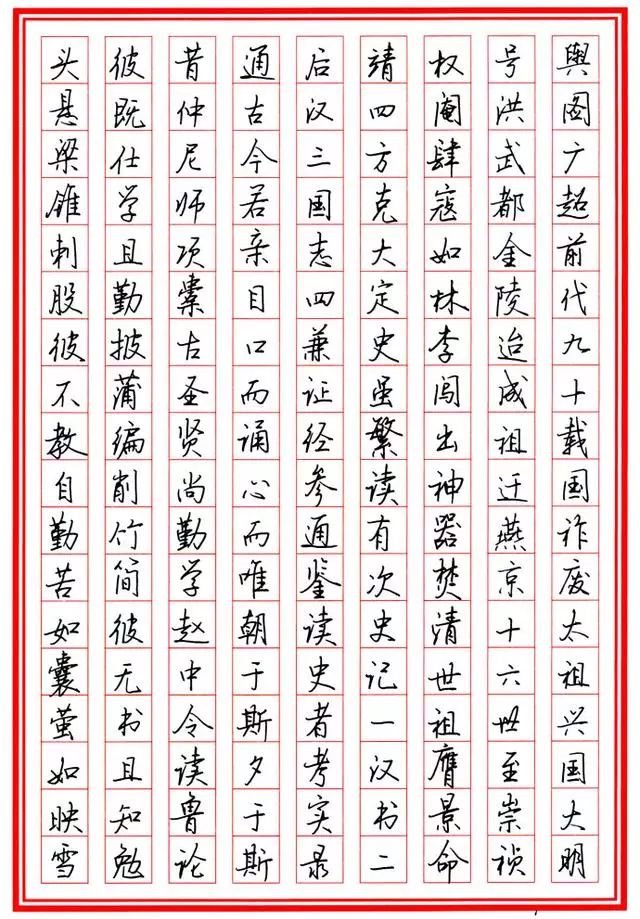 舆图广超前代九十载国祚废太祖兴国大明
号洪武都金陵迨成祖迁燕京十六世至崇祯
权阉肆寇如林李闯出神器焚清世祖膺景命
靖四方克大定史虽繁读有次史记一汉书二
后汉三国志四兼证经参通鉴读史者考实录
通古今若亲目口而诵心而唯朝于斯夕于斯
昔仲尼师项橐古圣贤尚勤学赵中令读鲁论
彼既仕学且勤披蒲编削竹简彼无书且知勉
头悬梁锥刺股彼不教自勤苦如囊萤如映雪